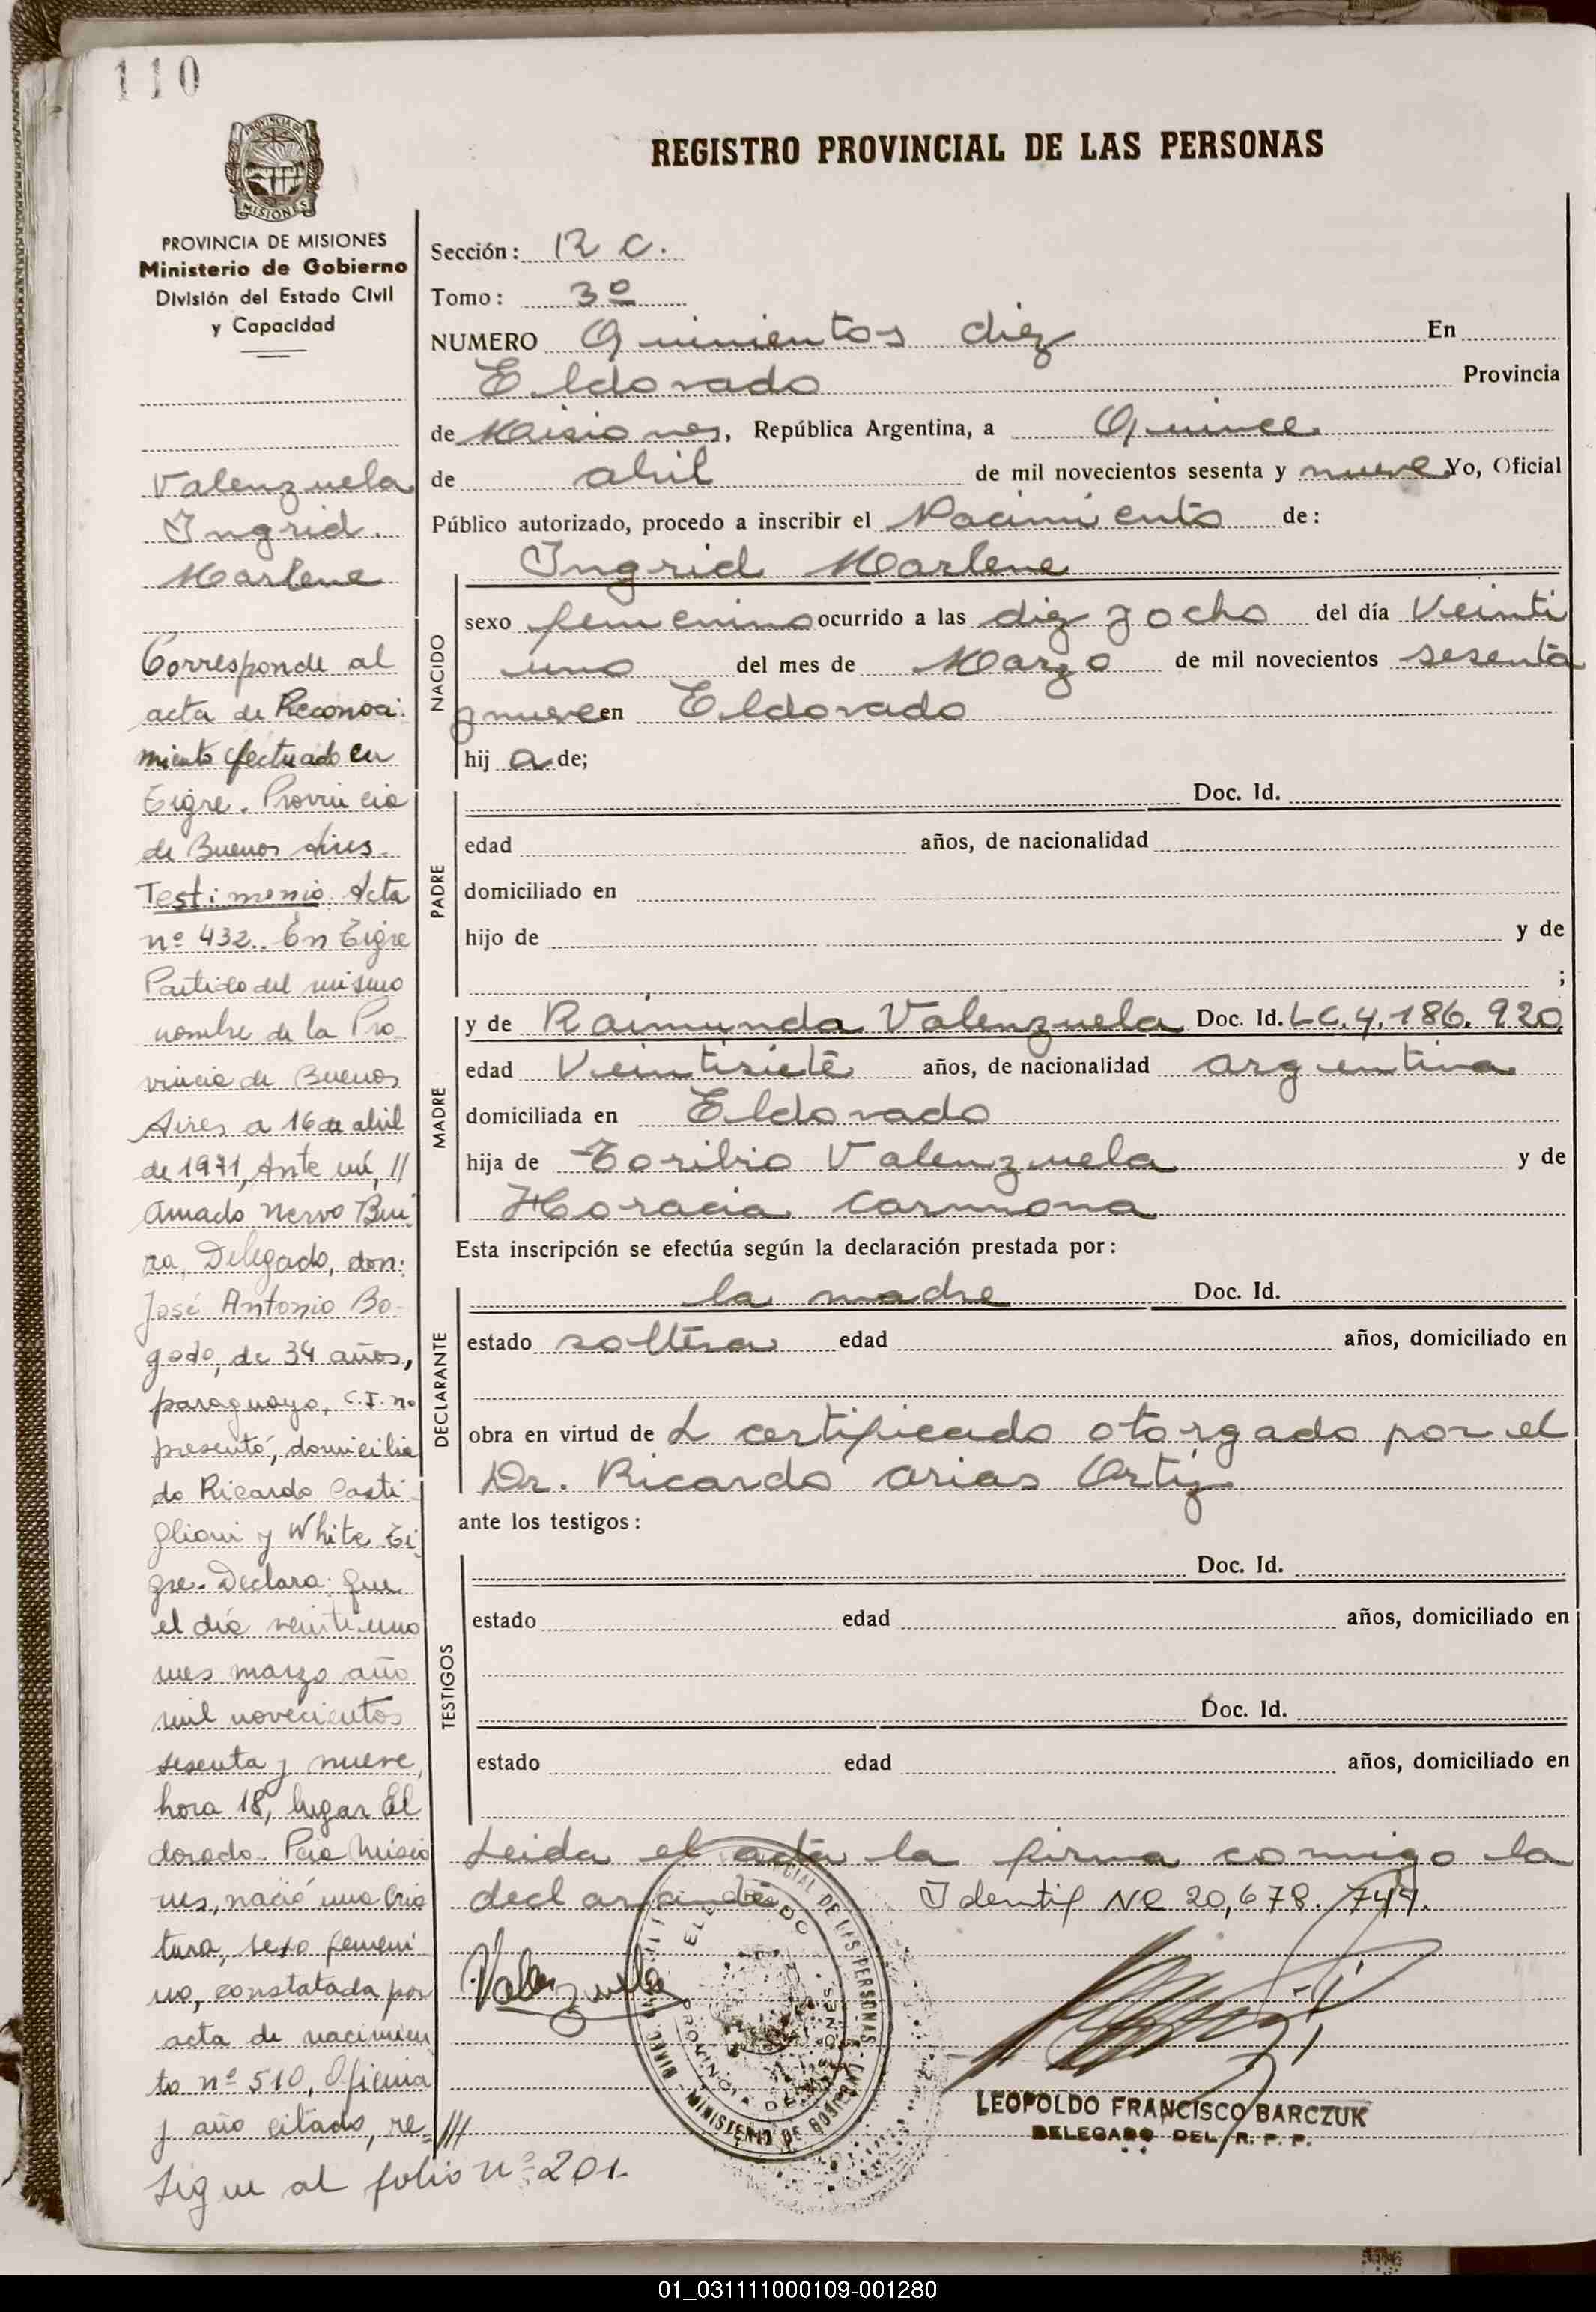 110
PROVINCIA DE
MISIONES
PROVINCIA DE MISIONES
Ministerio de Gobierno
División del Estado Civil
y Capacidad
Valenzuela
Ingrid.
Marlene
Corresponde al
acta de Reconoci-
miento efectuado en
Tigre. Provincia
de Buenos Aires.
Testimonio. Acta
nº 432.. En Tigre
Partido del mismo
nombre de la Pro-
vincia de Buenos
Aires a 16 de abril
de 1971, Ante mí, //
Amado Nervo
Delegado, don:
José Antonio Bo-
gado, de 34 años,
paraguayo, C.I. no
presentó, domicilia
do Ricardo Casti-
glioni y White Ti
gre. Declara: que
el día veintiuno
mes marzo año
mil novecientos
sesenta y nueve,
hora 18, lugar El
dorado. Pcia Misio
nes, nació una cria
tura, sexo femeni
no, constatada por
acta de nacimien
to nº 510, Oficina
y año citado, re= ///
Sigue al folio nº 201.
REGISTRO PROVINCIAL DE LAS PERSONAS
Sección: R C.
Tomo: 3º
NUMERO Quinientos diez En
Eldorado Provincia
de Misiones, República Argentina, a Quince
de abril de mil novecientos sesenta y nueve Yo, Oficial
Público autorizado, procedo a inscribir el Nacimiento de:
Ingrid Marlene
NACIDO
sexo femenino ocurrido a las diez y ocho del día Veinti
uno del mes de Marzo de mil novecientos sesenta
y nueve en Eldorado
hij a de;
PADRE
Doc. Id.
edad años, de nacionalidad
domiciliado en
hijo de y de
;
MADRE
y de Raimunda Valenzuela Doc. Id. LC. 4. 186. 920
edad Veintisiete años, de nacionalidad argentina
domiciliada en Eldorado
hija de Toribio Valenzuela y de
Horacia Carmona
Esta inscripción se efectúa según la declaración prestada por:
DECLARANTE
la madre Doc. Id.
estado soltera edad años, domiciliado en
obra en virtud de L certificado otorgado por el
Dr. Ricardo Arias Ortiz
ante los testigos:
TESTIGOS
Doc. Id.
estado edad años, domiciliado en
Doc. Id.
estado edad años, domiciliado en
Leida el acta la firma comigo la
declarande Identif Nº 20,678.747.
Valenzuela
LEOPOLDO FRANCISCO BARCZUK
DELEGADO DEL R. P. P.
01_031111000109-001280